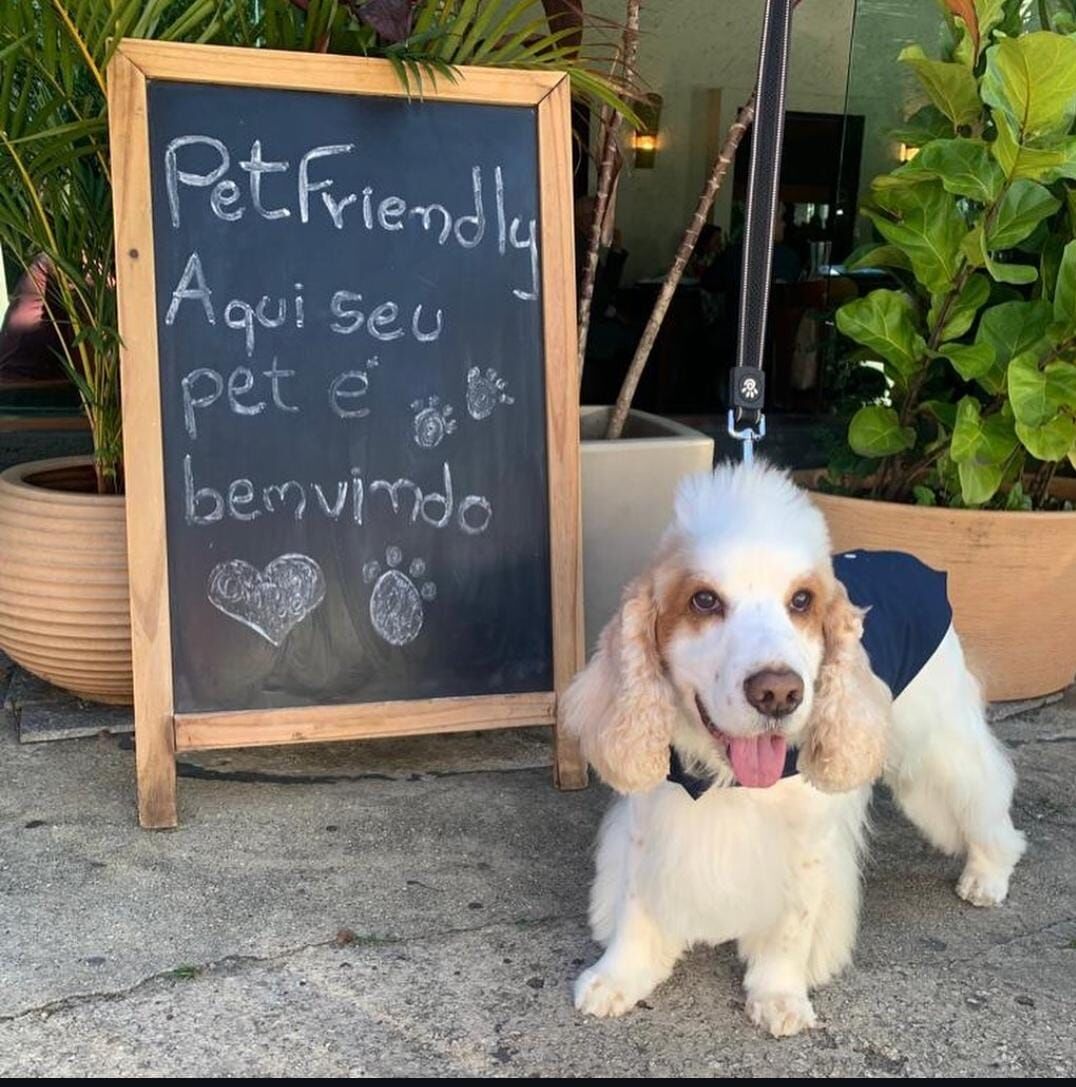 PetFriendly
Aqui seu
pet é
bemvindo